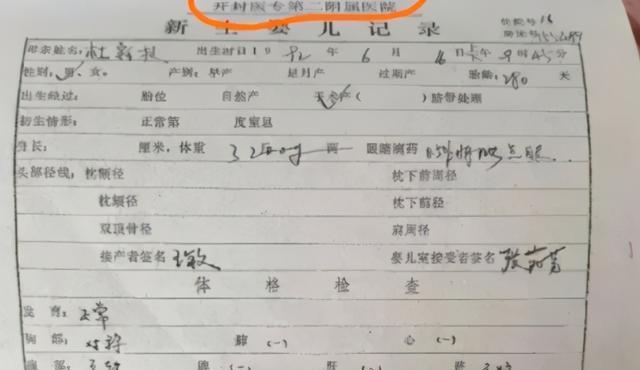 开封医专第二附属医院
新生婴儿记录
住院号 16
母亲姓名: 杜新枝 出生时日19 92 年 6 月 16 日 午 9 时 45 分
性别: 男、女。 产别: 早产 足月产 过期产 胎龄: 280 天
出生经过: 胎位 自然产 产( ) 脐带处理
初生情形: 正常第 度窒息
身长: 厘米, 体重 3200g 两 眼睛滴药
头部径线: 枕额径 枕下前囟径
枕颏径 枕下前径
双顶骨径 肩周径
接产者签名 王敏 婴儿室接受者签名
体格检查
发育: 正常
胸部: 对称 肺 (一) 心 (一)
腹部: (一) 肝 (一)